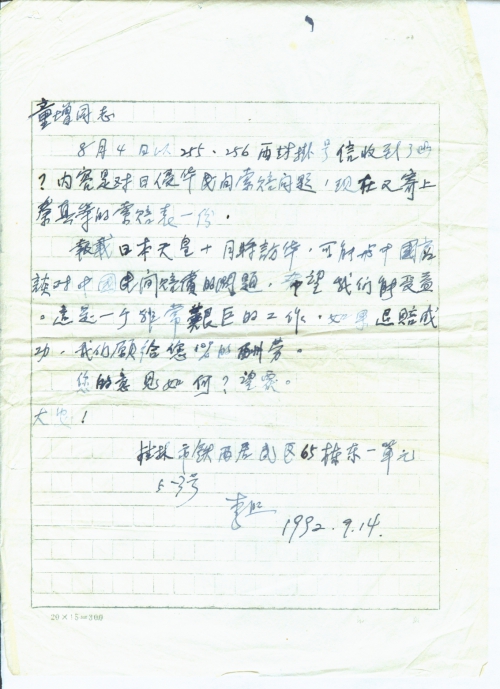 童增同志
8月4日以255、256两封挂号信收到了吗
？内容是对日侵华民间索赔问题，现在又寄上
蔡具等的索赔表一份。
报载日本天皇十月将访华，可能与中国商
谈对中国民间赔偿的问题，希望我们能受益
。这是一个非常艰巨的工作，如果退赔成
功，我们愿给您10%的酬劳。
您的意见如何？望赐。
大安！
桂林市铁西居民区65栋东一单元
5-3号
1992.9.14.
20×15=300